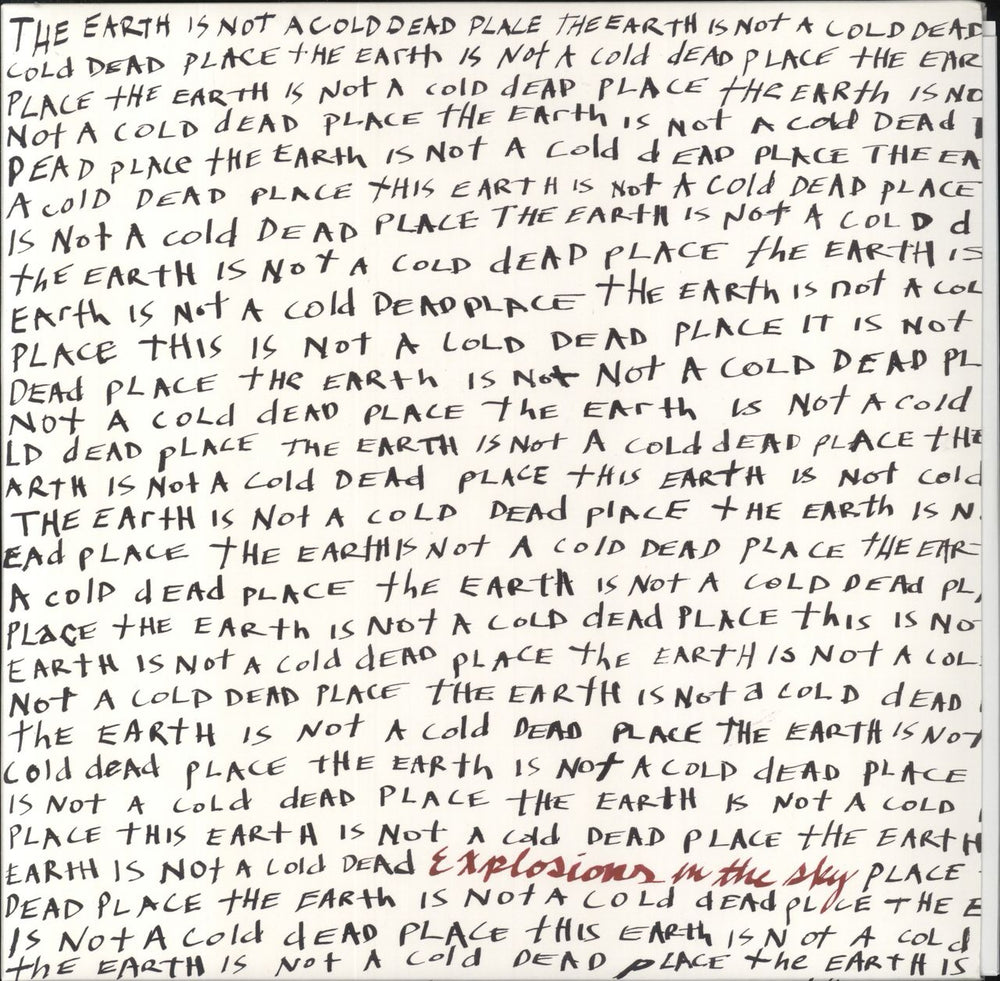 THE EARTH IS NOT A COLD DEAD PLACE THE EARTH IS NOT A COLD DEAD
COLd DEAD PLACE tHE EArth IS Not A Cold dEAD PLACE tHE EAR
PLACE tHE EARTH IS Not A Cold dEAD PLACE tHE EARth IS NO
Not A COLD dEAD PLACE tHE EArth IS Not A Cold DEAd
DEAD pLACe tHE EARth IS Not A Cold dEAD PLACE THE EA
A ColD DEAD PLACE tHIS EARTH IS Not A Cold DEAD pLACE
IS Not A cold DEAD PLACE THE EARtH IS Not A COLD d
thE EARTH IS Not A COLD dEAD PLACE thE EARTH IS
EARth IS Not A Cold DEAD PLACE tHE EARth IS not A COL
PLACE THIS IS Not A COLD DEAD PLACE IT IS Not
DEAd pLACE tHe EARth IS Not Not A COLD DEAD PL
Not A COLd dEAD PLACE thE EArth IS Not A Cold
LD dEAD pLACE THE EARTH IS Not A Cold dEAD pLACE tHE
ARTH IS Not A Cold DEAd pLACE tHIS EARtH IS Not Cold
THE EArtH IS Not A COLD DEAd plACE tHE EARth IS N
EAd pLACE tHE EARtH IS Not A ColD DEAD PLACE tHE EAR
A colD dEAd pLACE thE EARth IS Not A COLD DEAd pL
PLaCE tHE EARth IS Not A COLD dEAd PLACE this IS No
EARTH IS Not A Cold dEAD pLACE thE EARTH IS Not A COL
Not A COLD DEAD PLACE tHE EARtH IS Not a COLD dEAD
thE EARTH IS Not A Cold DEAD PLACE THE EARtH IS Not
Cold dead PLACE tHE EARth IS Not A COLD dEAD PLACE
IS Not A ColD dEAD PLACE tHE EARtH IS Not A COLD
PLACE tHIS EARtH IS Not A Cold DEAD PLACE tHE EARtH
EARTH IS NOt A Cold DEAd Explosions in the sky PLACE
DEAD PLACE tHE EARtH IS Not A COLD dEAd pLACE tHE E
IS Not A Cold dEAD PLACE tHIS EARth IS Not A COLd
thE EARTH IS Not A Cold DEAD pLACE the EARtH IS